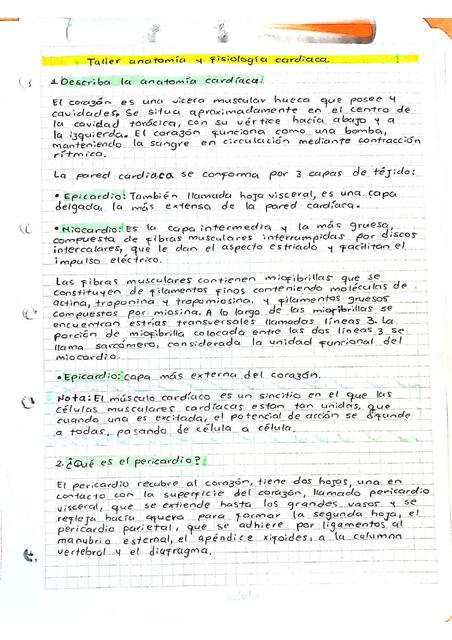 Taller anatomía y fisiología cardíaca.
1. Describa la anatomía cardíaca:
El corazón es una vícera muscular hueca que posee 4
cavidades. Se situa aproximadamente en el centro de
la cavidad torácica, con su vértice hacia abajo y a
la izquierda. El corazón funciona como una bomba,
manteniendo la sangre en circulación mediante contracción
rítmica.
La pared cardíaca se conforma por 3 capas de téjido:
• Epicardio: También llamada hoja visceral, es una capa
delgada, la más extensa de la pared cardíaca.
• Miocardio: Es la capa intermedia y la más gruesa,
compuesta de fibras musculares interrumpidas por discos
intercalares, que le dan el aspecto estriado y facilitan el
impulso eléctrico.
Las fibras musculares contienen miofibrillas que se
constituyen de filamentos finos conteniendo moléculas de
actina, troponina y tropomiosina, y filamentos gruesos
compuestos por miosina. A lo largo de las miofibrillas se
encuentran estrías transversales llamadas líneas Z. La
porción de miofibrilla colocada entre las dos líneas Z se
llama sarcómero, considerada la unidad funcional del
miocardio.
• Epicardio: capa más externa del corazón.
Nota: El músculo cardíaco es un sincitio en el que las
células musculares cardíacas estan tan unidas, que
cuando una es excitada, el potencial de acción se difunde
a todas, pasando de célula a célula.
2. ¿Qué es el pericardio?
El pericardio recubre al corazón, tiene dos hojas, una en
contacto con la superficie del corazón, llamado pericardio
visceral, que se extiende hasta los grandes vasos y se
refleja hacia afuera para formar la segunda hoja, el
pericardio parietal, que se adhiere por ligamentos al
manubrio esternal, el apéndice xifoides, a la columna
vertebral y el diafragma.